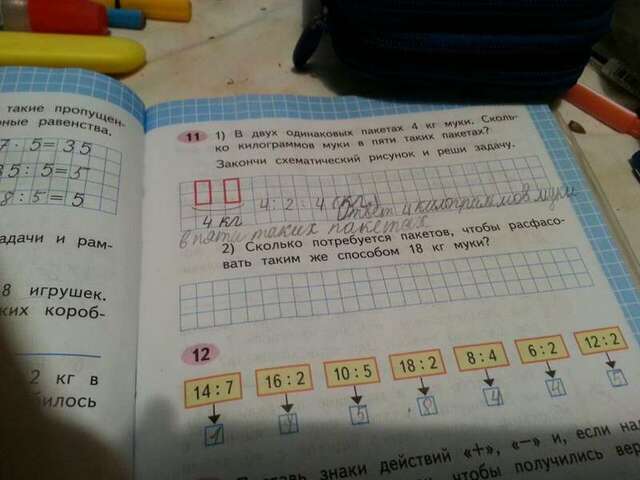 такие пропущен-
ные равенства.
7 · 5 = 35
5 : 5 =
8 : 5 = 5
адачи и рам-
8 игрушек.
ких короб-
2 кг в
билось
11 1) В двух одинаковых пакетах 4 кг муки. Сколь-
ко килограммов муки в пяти таких пакетах?
Закончи схематический рисунок и реши задачу.
4 : 2 : 4 (кг)
4 кг
Ответ 4 килограммов муки
в пяти таких пакетах
2) Сколько потребуется пакетов, чтобы расфасо-
вать таким же способом 18 кг муки?
12
14 : 7 16 : 2 10 : 5 18 : 2 8 : 4 6 : 2 12 : 2
1 5 8 4 4 5
знаки действий «+», «−» и, если над
чтобы получились вер